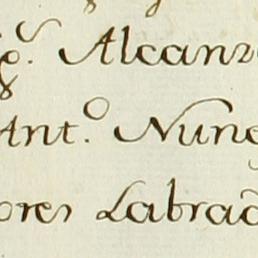 g.ᵉ Alcanz
Ant.º Nune
ores Labrad